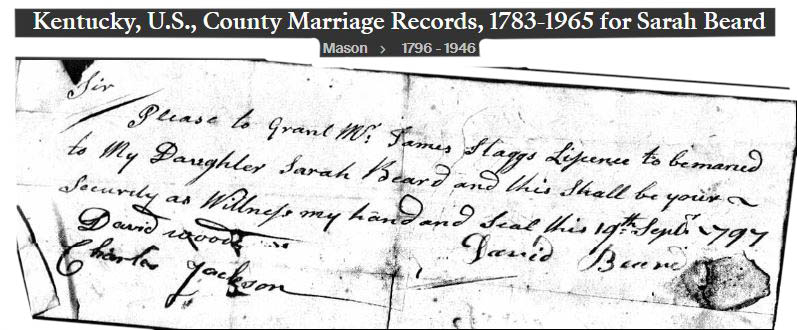 Kentucky, U.S., County Marriage Records, 1783-1965 for Sarah Beard
Mason > 1796 - 1946
Sir
Please to Grant Mr. James Staggs Lisence to be maried
to My Daughter Sarah Beard and this Shall be your
Security as Willness my hand and Seal this 19th Septr 1797
David woods David Beard
Charles Jackson